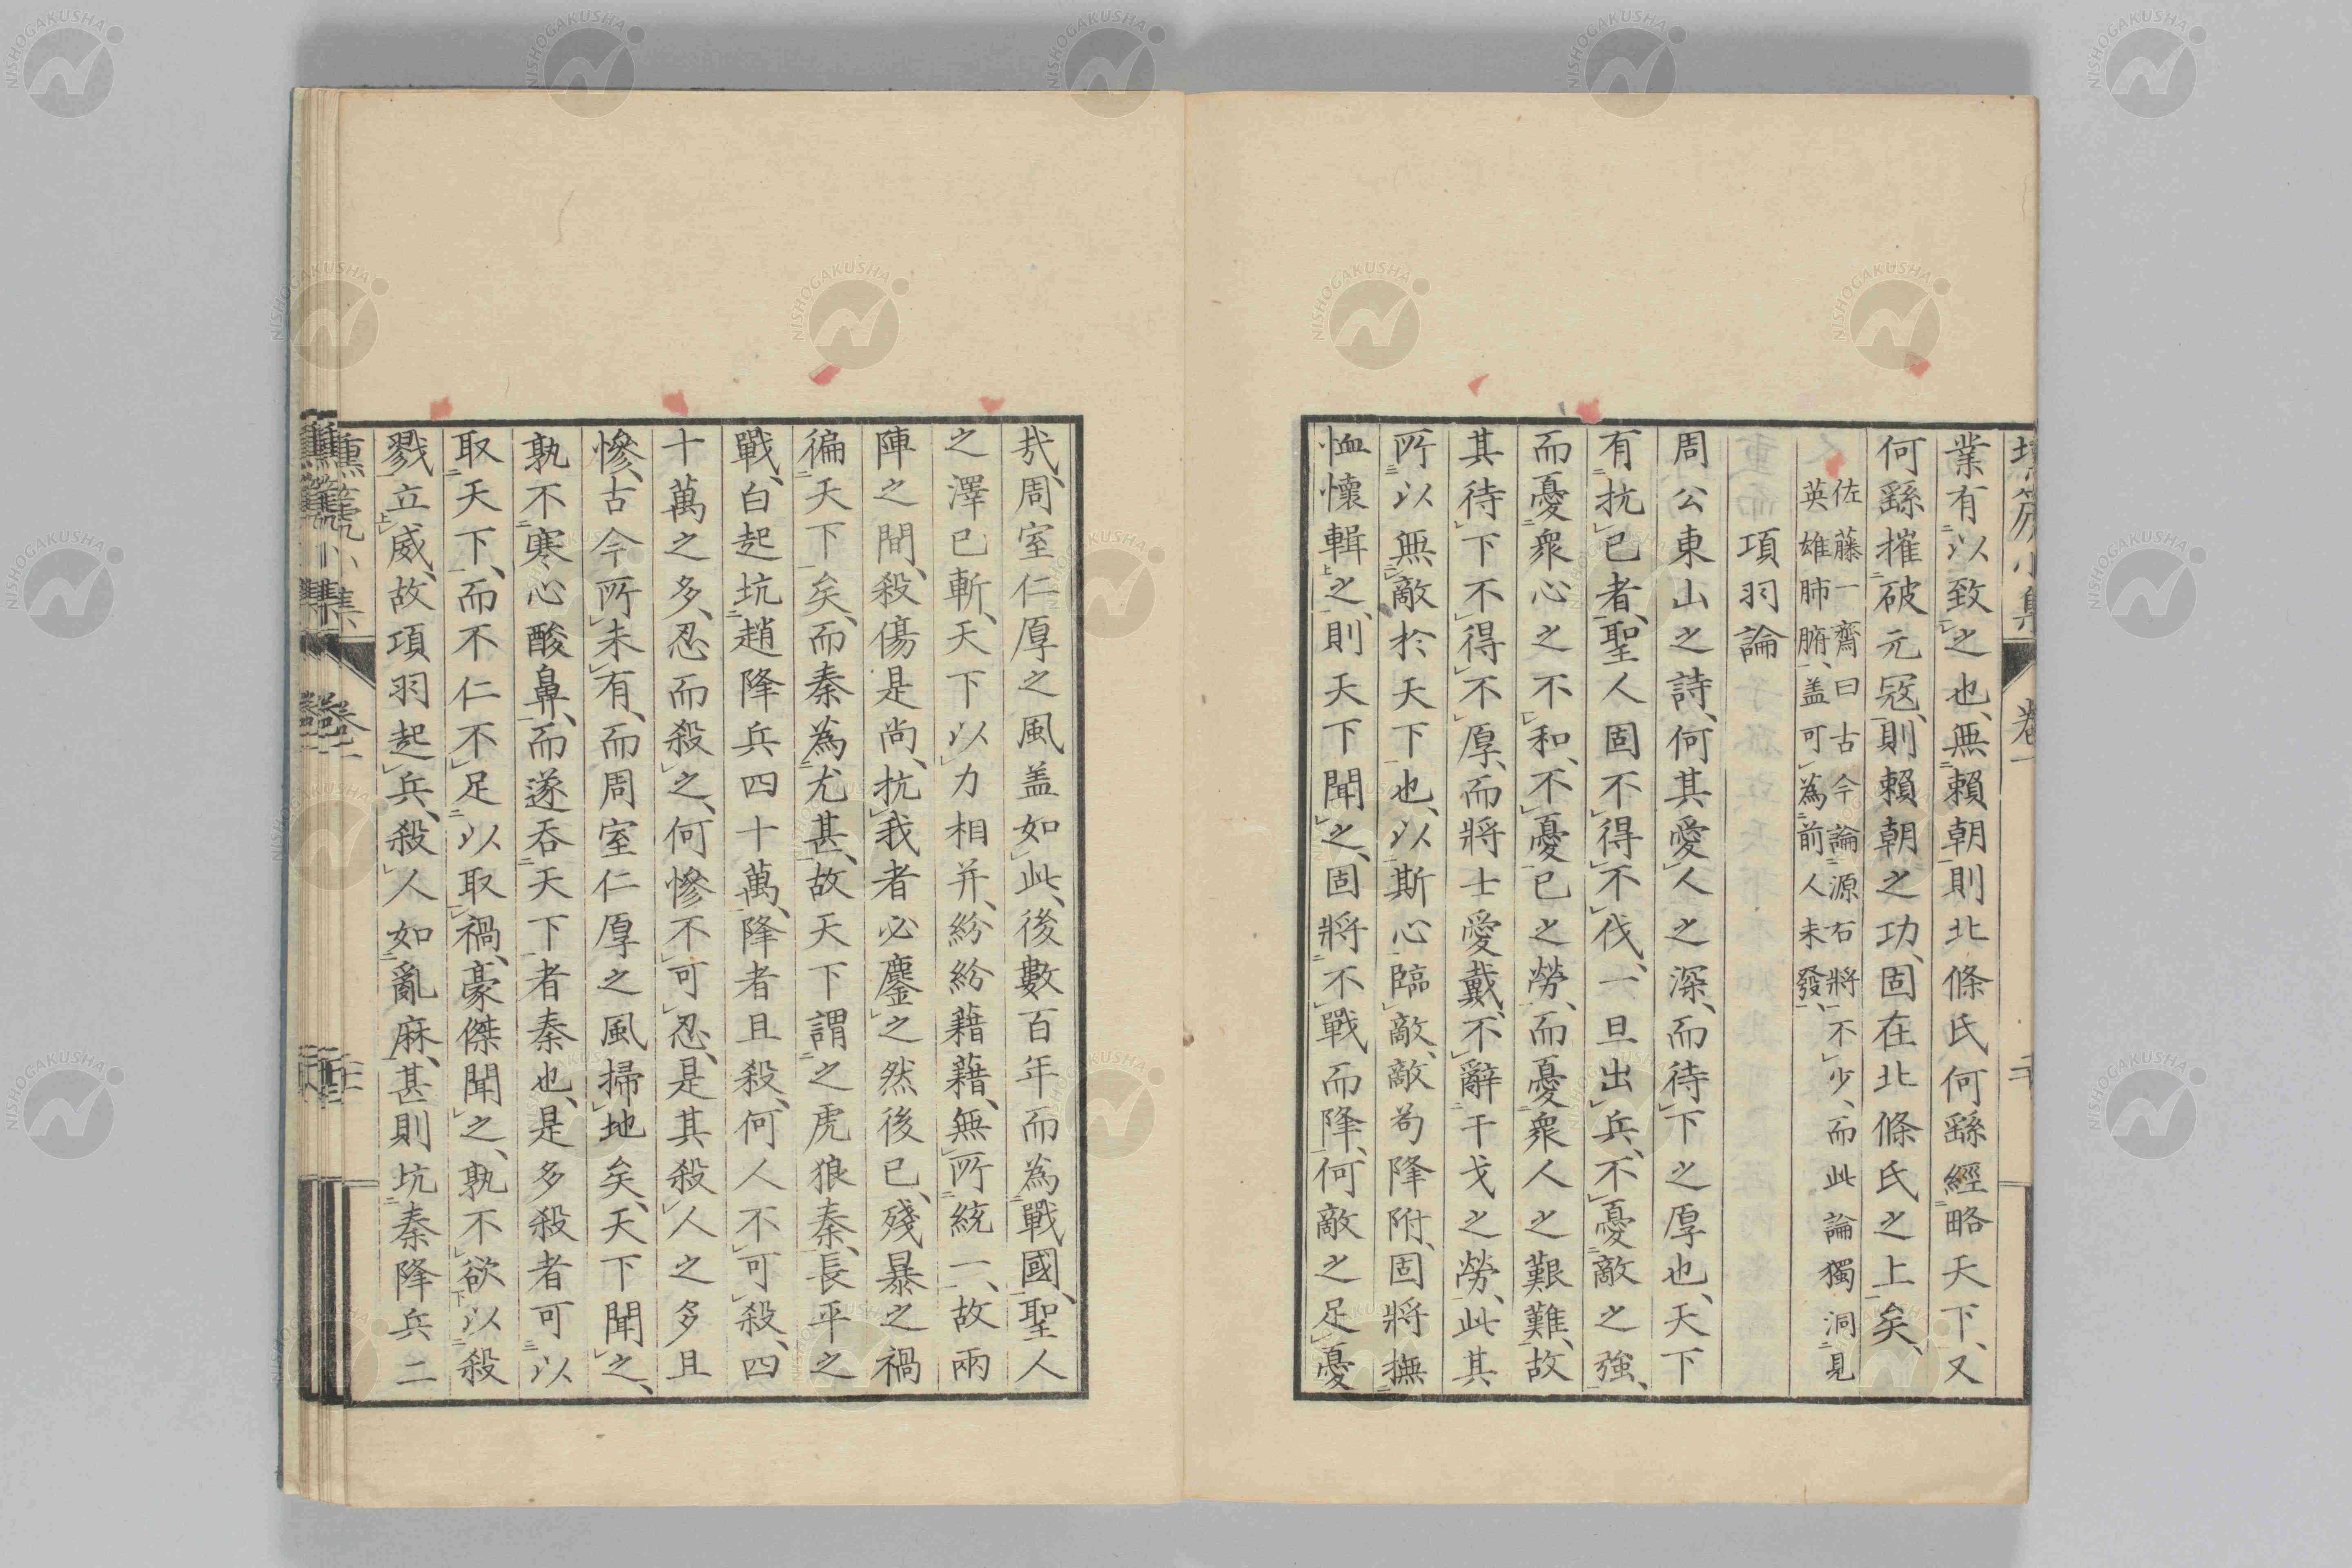 業有以致之也、無賴朝則北條氏何繇經略天下、又
何繇摧破元冦、則賴朝之功、固在北條氏之上矣、
佐藤一齋曰古今論源右將不少、而此論獨洞見
英雄肺腑、盖可為前人未發、
項羽論
周公東山之詩、何其愛人之深、而待下之厚也、天下
有抗已者、聖人固不得不伐、一旦出兵、不憂敵之強、
而憂衆心之不和、不憂已之勞、而憂衆人之艱難、故
其待下不得不厚、而將士愛戴、不辭干戈之勞、此其
所以無敵於天下也、以斯心臨敵、敵苟降附、固將撫
恤懷輯之、則天下聞之、固將不戰而降、何敵之足憂
哉、周室仁厚之風、盖如此、後數百年而為戰國、聖人
之澤已斬、天下以力相并、紛紛藉藉、無所統一、故兩
陣之間、殺傷是尚、抗我者必鏖之然後已、殘暴之禍
徧天下矣、而秦為尤甚、故天下謂之虎狼秦、長平之
戰、白起坑趙降兵四十萬、降者且殺、何人不可殺、四
十萬之多、忍而殺之、何慘不可忍、是其殺人之多且
慘、古今所未有、而周室仁厚之風掃地矣、天下聞之、
孰不寒心酸鼻、而遂吞天下者秦也、是多殺者可以
取天下、而不仁不足以取禍、豪傑聞之、孰不欲以殺
戮立威、故項羽起兵、殺人如亂麻、甚則坑秦降兵二
壎篪小集 卷一
NISHOGAKUSHA